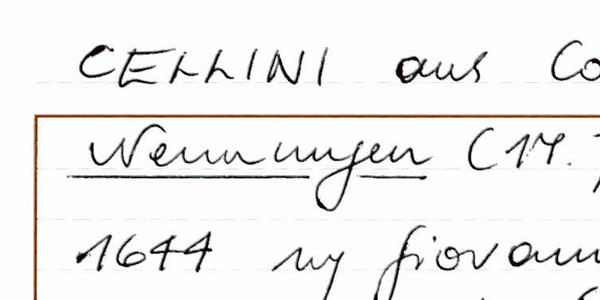 CELLINI aus Co
Nennungen (17.
1644 ny Giovann